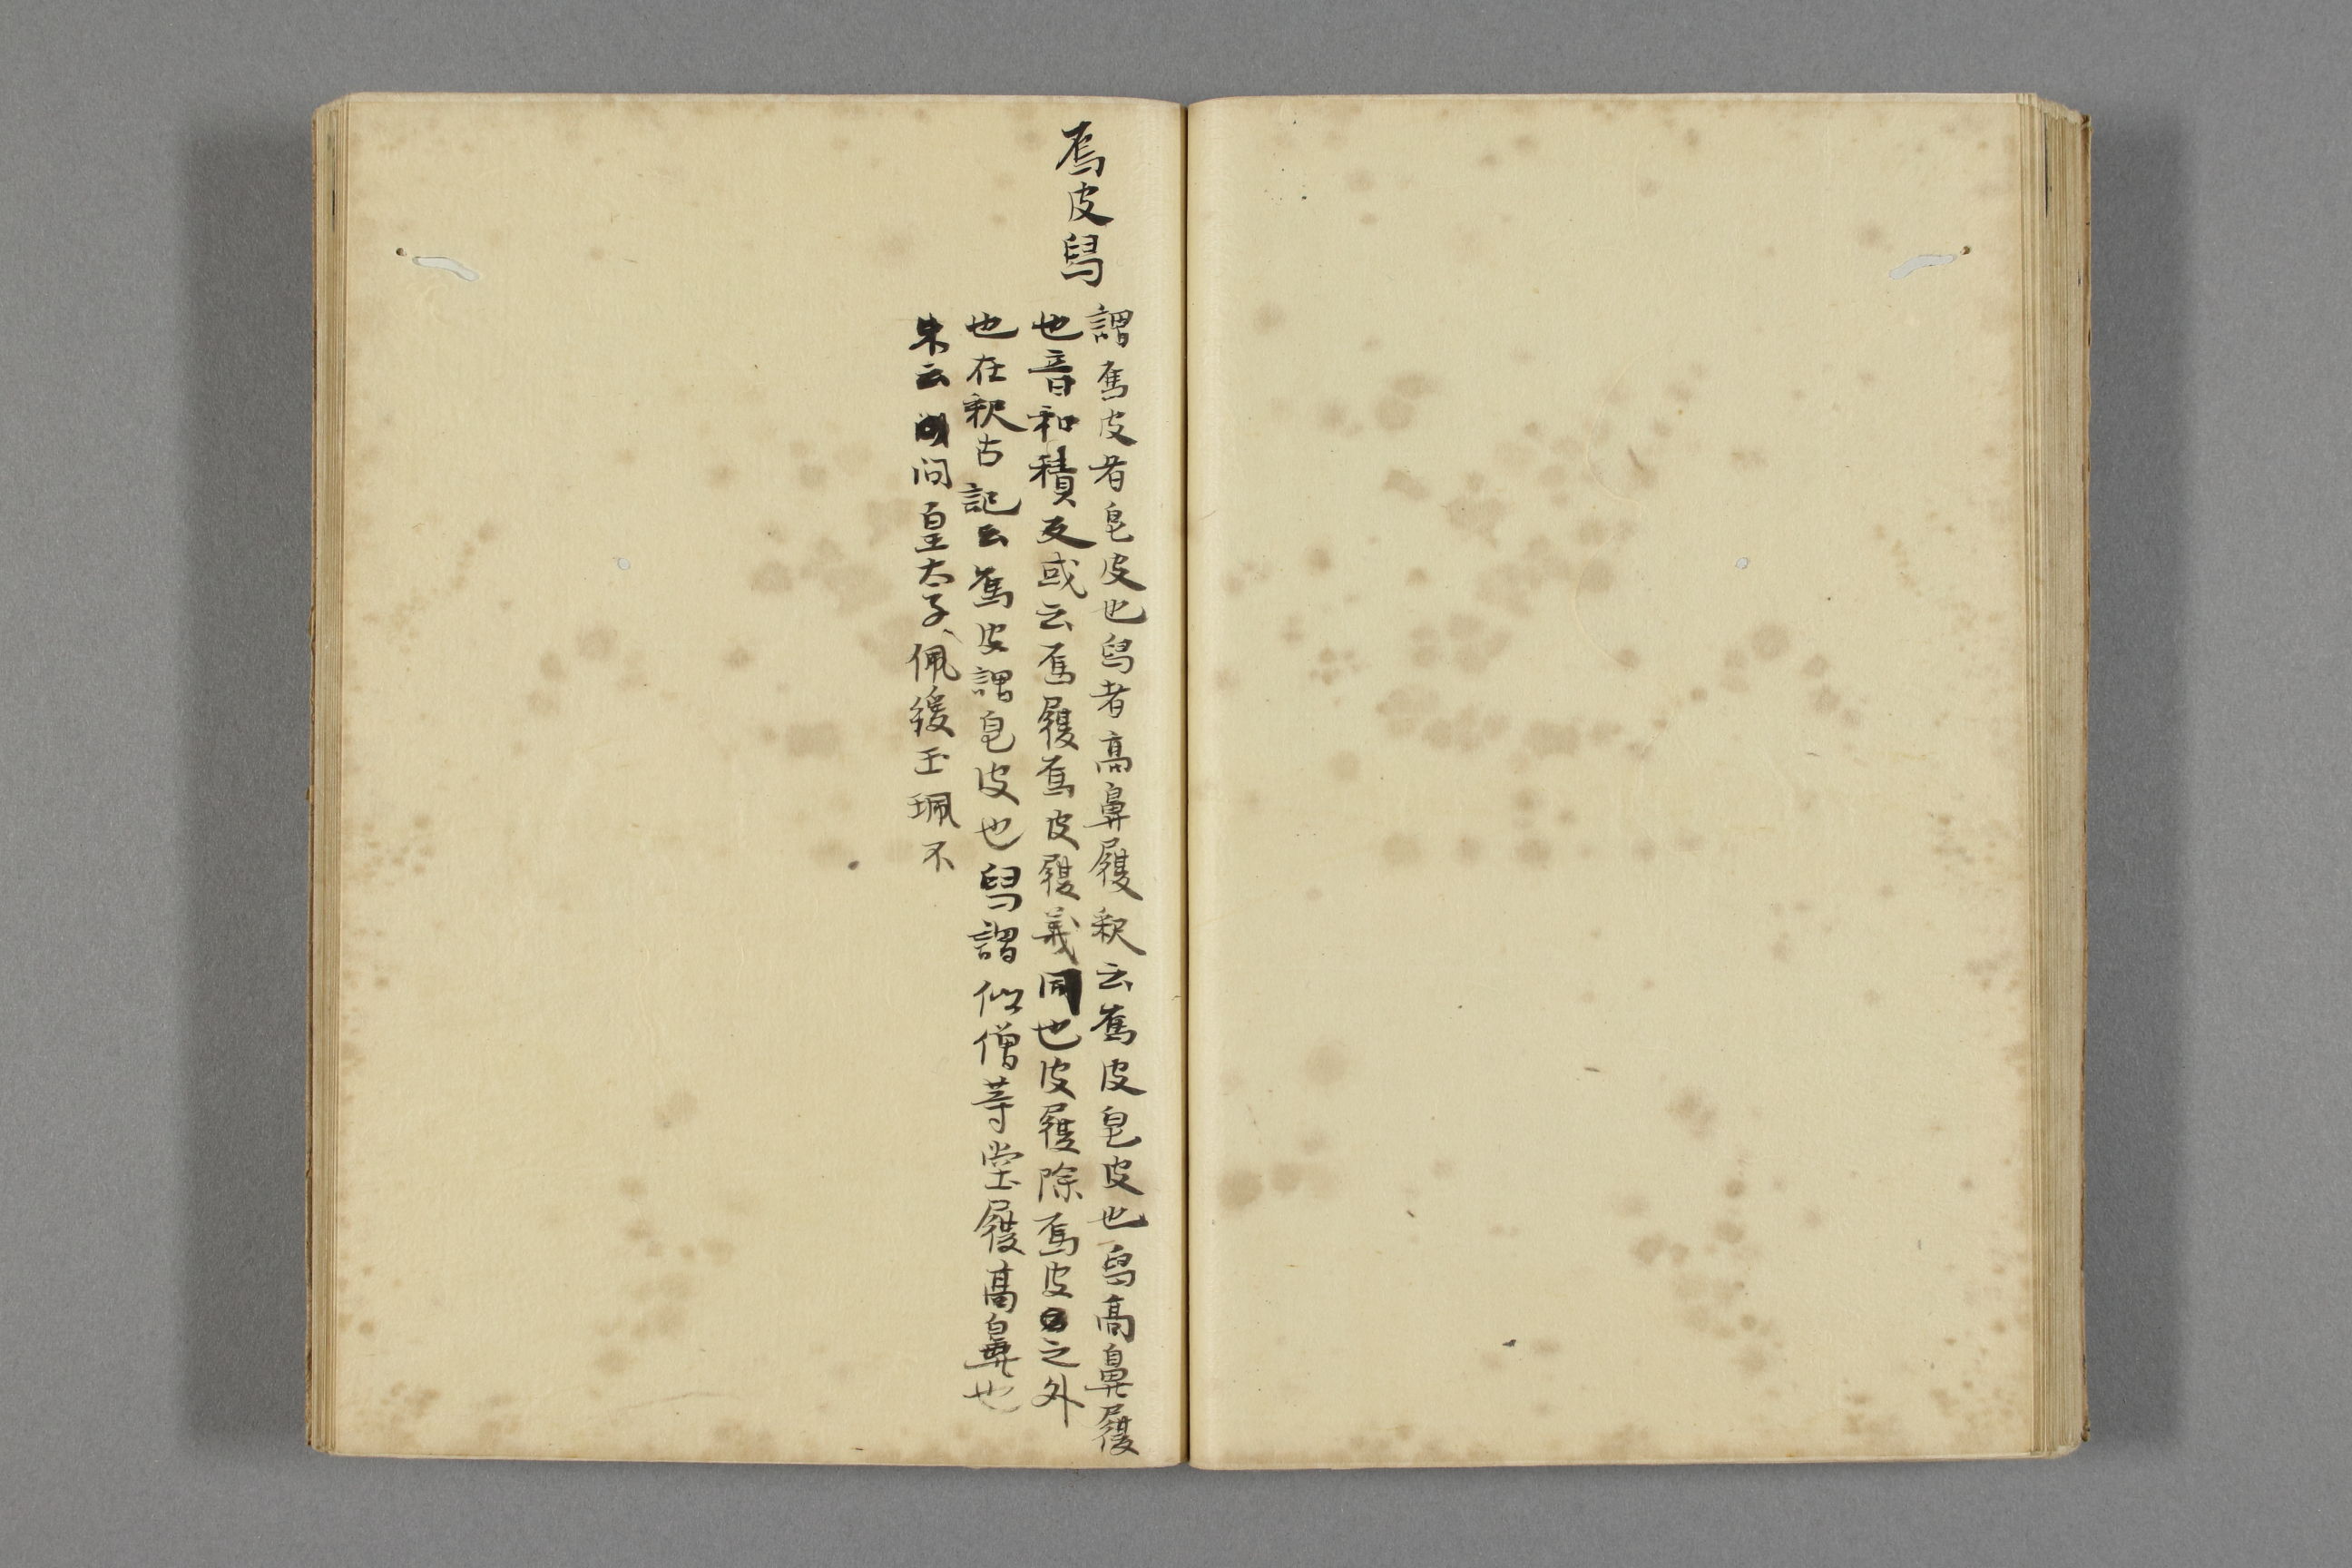 烏皮舄
謂烏皮者皂皮也舄者高鼻履釈云烏皮皂皮也舄高鼻履
也音和積反或云烏履烏皮履義同也皮履除烏皮之外
也在釈古記云烏皮謂皂皮也舄謂似僧等堂履高鼻也
朱云問皇太子佩綬玉珮不